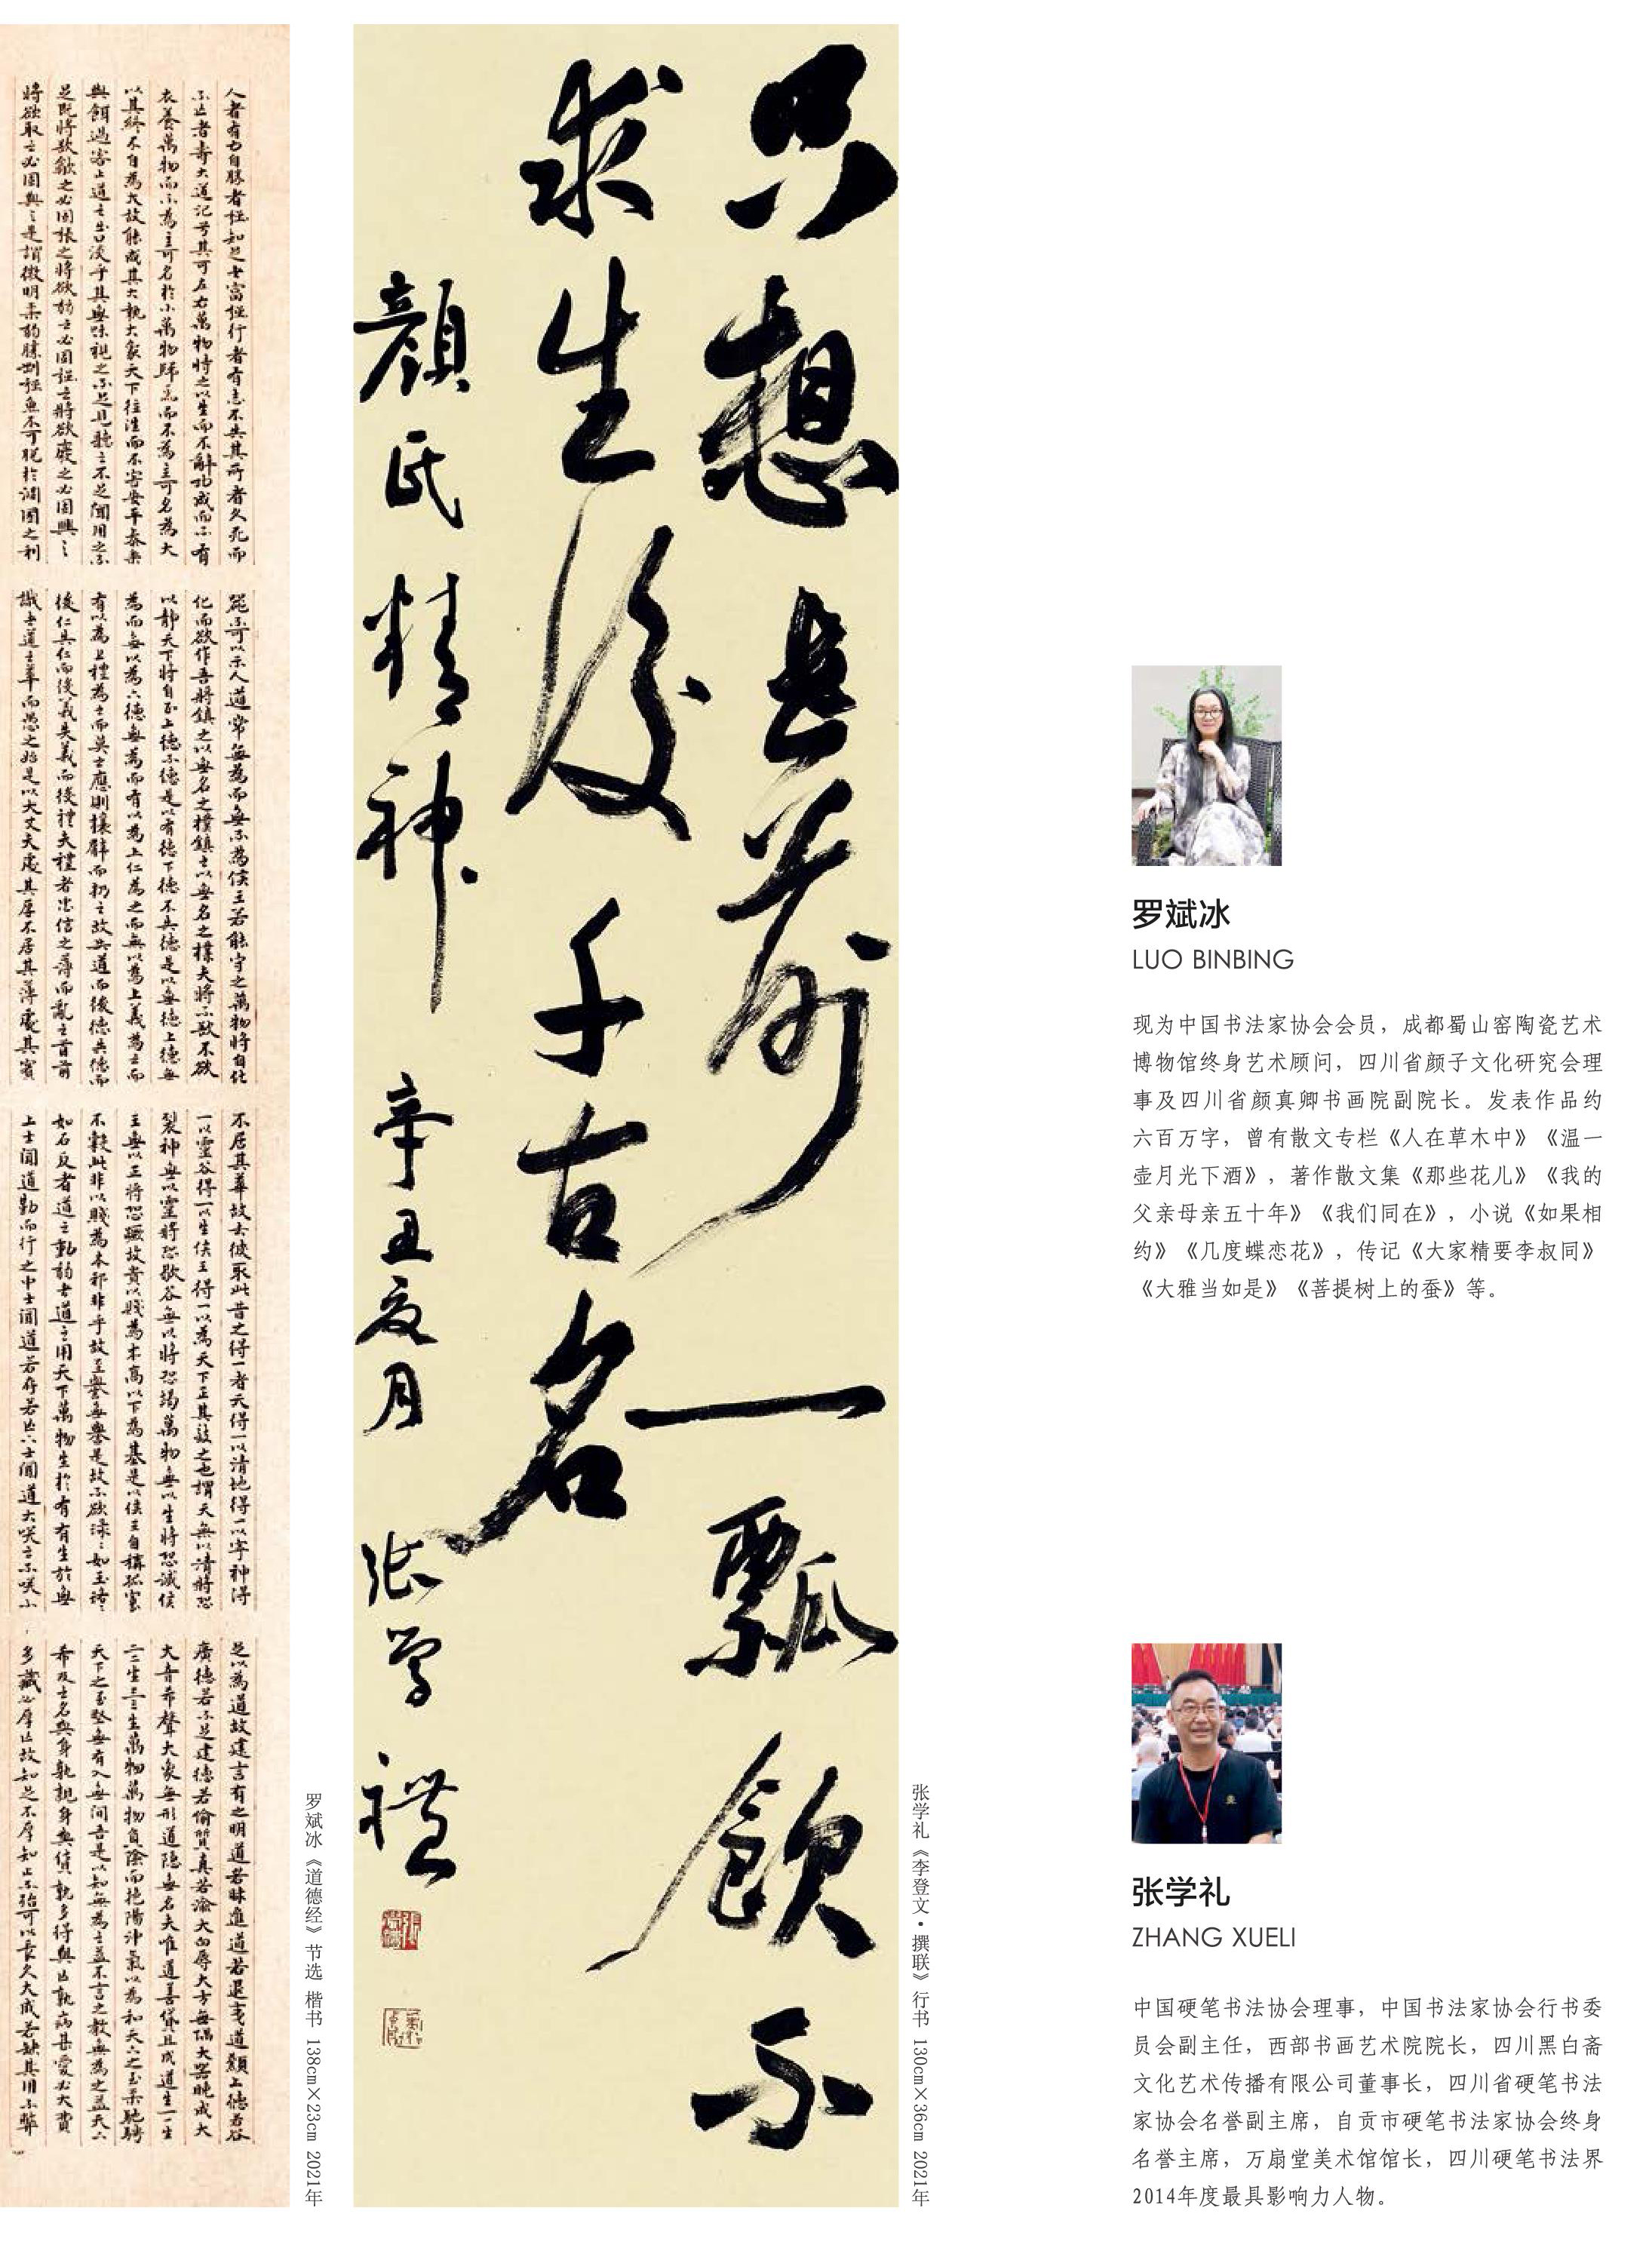 人者有力自勝者強知足者富強行者有志不失其所者久死而
不亡者壽大道汜兮其可左右萬物恃之以生而不辭功成而不有
衣養萬物而不為主可名於小萬物歸焉而不為主可名為大
以其終不自為大故能成其大執大象天下往往而不害安平泰樂
與餌過客止道之出口淡乎其無味視之不足見聽之不足聞用之不
足既將欲歙之必固張之將欲弱之必固強之將欲廢之必固興之
將欲取之必固與之是謂微明柔弱勝剛強魚不可脫於淵國之利
器不可以示人道常無為而無不為侯王若能守之萬物將自化
化而欲作吾將鎮之以無名之樸鎮之以無名之樸夫將不欲不欲
以靜天下將自正上德不德是以有德下德不失德是以無德上德無
為而無以為下德無為而有以為上仁為之而無以為上義為之而
有以為上禮為之而莫之應則攘臂而扔之故失道而後德失德而
後仁失仁而後義失義而後禮夫禮者忠信之薄而亂之首前
識者道之華而愚之始是以大丈夫處其厚不居其薄處其實
不居其華故去彼取此昔之得一者天得一以清地得一以寧神得
一以靈谷得一以生侯王得一以為天下正其致之也謂天無以清將恐
裂神無以靈將恐歇谷無以將恐竭萬物無以生將恐滅侯
王無以正將恐蹶故貴以賤為本高以下為基是以侯王自稱孤寡
不穀此非以賤為本邪非乎故至譽無譽是故不欲琭琭如玉珞珞
如石反者道之動弱者道之用天下萬物生於有有生於無
上士聞道勤而行之中士聞道若存若亡下士聞道大笑之不笑不
足以為道故建言有之明道若昧進道若退夷道若纇上德若谷
廣德若不足建德若偷質真若渝大白若辱大方無隅大器晚成大
音希聲大象無形道隱無名夫唯道善貸且成道生一一生
二二生三三生萬物萬物負陰而抱陽沖氣以為和天下之至柔馳騁
天下之至堅無有入無間吾是以知無為之益不言之教無為之益天下
希及之名與身孰親身與貨孰多得與亡孰病甚愛必大費
多藏必厚亡故知足不辱知止不殆可以長久大成若缺其用不弊
罗斌冰《道德经》节选 楷书 138cm×23cm 2021年
只想
前一瓢飲不
求生後千古名
顏氏精神 辛丑夏月 張學禮
张学礼《李登文·撰联》行书 130cm×36cm 2021年
罗斌冰
LUO BINBING
现为中国书法家协会会员，成都蜀山窑陶瓷艺术
博物馆终身艺术顾问，四川省颜子文化研究会理
事及四川省颜真卿书画院副院长。发表作品约
六百万字，曾有散文专栏《人在草木中》《温一
壶月光下酒》，著作散文集《那些花儿》《我的
父亲母亲五十年》《我们同在》，小说《如果相
约》《几度蝶恋花》，传记《大家精要李叔同》
《大雅当如是》《菩提树上的蚕》等。
张学礼
ZHANG XUELI
中国硬笔书法协会理事，中国书法家协会行书委
员会副主任，西部书画艺术院院长，四川黑白斋
文化艺术传播有限公司董事长，四川省硬笔书法
家协会名誉副主席，自贡市硬笔书法家协会终身
名誉主席，万扇堂美术馆馆长，四川硬笔书法界
2014年度最具影响力人物。